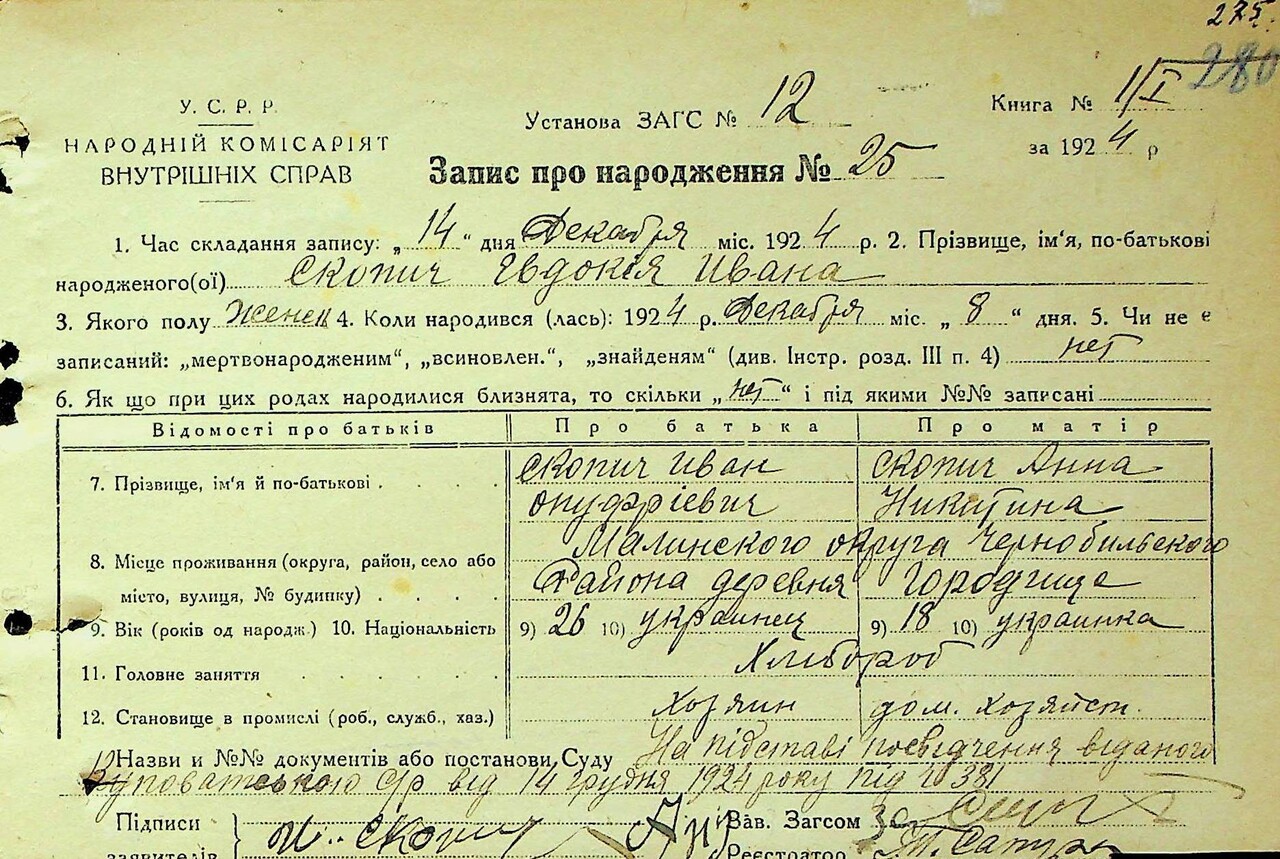 275.
280
У. С. Р. Р.
НАРОДНІЙ КОМІСАРІЯТ
ВНУТРІШНІХ СПРАВ
Установа ЗАГС № 12
Книга № 1/I
за 1924 р
Запис про народження № 25
1. Час складання запису: „14“ дня Декабря міс. 1924 р. 2. Прізвище, ім'я, по-батькові
народженого(ої) Скопич Евдокія Ивана
3. Якого полу Женск 4. Коли народився (лась): 1924 р. Декабря міс. „8“ дня. 5. Чи не є
записаний: „мертвонародженим“, „всиновлен.“, „знайденям“ (див. Інстр. розд. III п. 4) нет
6. Як що при цих родах народилися близнята, то скільки „нет“ і під якими №№ записані
Відомості про батьків Про батька Про матір
7. Прізвище, ім'я й по-батькові Скопич Иван Скопич Анна
Онуфрієвич Никитина
Малинского округа Чернобильского
8. Місце проживання (округа, район, село або
місто, вулиця, № будинку) Района деревня Городище
9. Вік (років од народж.) 10. Національність 9) 26 10) украинец 9) 18 10) украинка
Хлибороб
11. Головне заняття
12. Становище в промислі (роб., служб., хаз.) хозяин дом. хозяйст.
Назви и №№ документів або постанови Суду На підставі посвідчення віданого
с/р від 14 грудня 1924 року під № 381
Підписи Зав. Загсом
заявителів Скопич Реєстратор